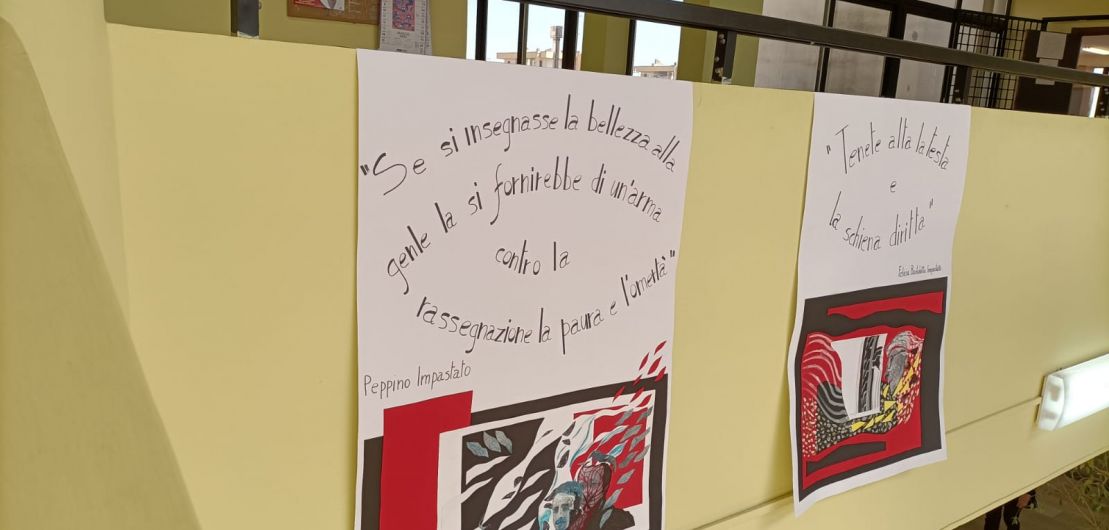 "Se si insegnasse la bellezza alla
gente la si fornirebbe di un'arma
contro la
rassegnazione la paura e l'omertà"
Peppino Impastato
"Tenete alta la testa
e
la schiena diritta"
Felicia Bartolotta Impastato